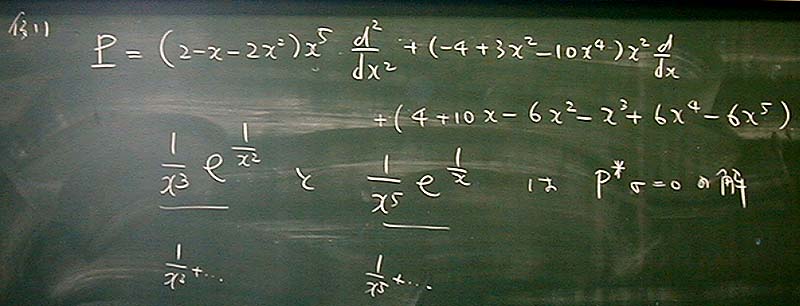 例1)
P = (2-x-2x²)x⁵ d²/dx² + (-4+3x²-10x⁴)x² d/dx
+(4+10x-6x²-x³+6x⁴-6x⁵)
1/x³ e^(1/x²) と 1/x⁵ e^(1/x) は P*σ=0 の解
1/x³+… 1/x⁵+…